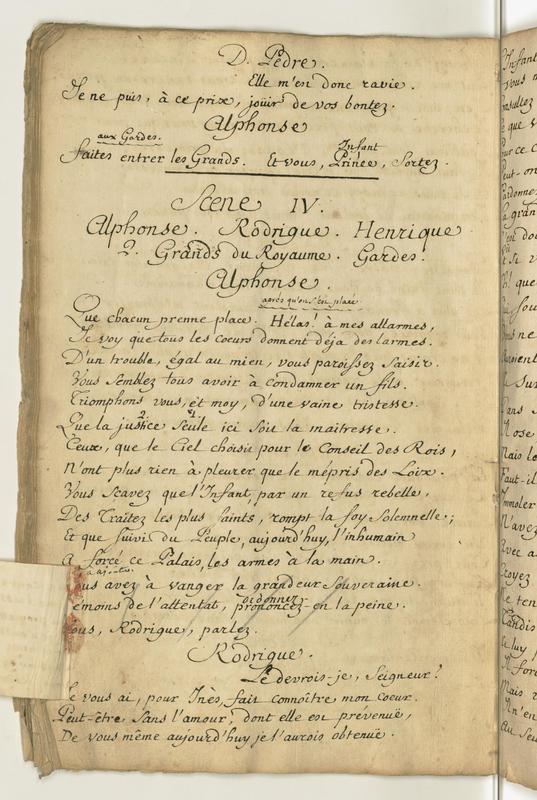 D. Pédre.
Elle m'est donc ravie.
Je ne puis, à ce prix, joüir de vos bontez.
Alphonse
aux Gardes.
faites entrer les Grands. Et vous, Prince, Sortez.
Infant
Scene IV.
Alphonse. Rodrigue. Henrique
2. Grands du Royaume. Gardes.
Alphonse.
après qu'on s'est placé.
Que chacun prenne place. Hélas! à mes allarmes,
Je voy que tous les coeurs donnent déja des larmes.
D'un trouble, égal au mien, vous paroissez Saisir.
Vous Semblez tous avoir à condamner un fils.
Triomphons vous, et moy, d'une vaine tristesse.
Que la justice Seule ici Soit la maitresse.
2. 1
Ceux, que le Ciel choisit pour le Conseil des Rois,
N'ont plus rien à pleurer que le mépris des Loix.
Vous Scavez que l'Infant, par un refus rebelle,
Des Traitez les plus Saints, rompt la foy Solemnelle;
Et que Suivi du Peuple, aujourd'huy, l'inhumain
a forcé ce Palais, les armes à la main.
ous avez à vanger la grandeur Souveraine.
emoins de l'attentat, prononcez-en la peine.
ordonnez
ous, Rodrigue, parlez.
Rodrigue.
Le devrois-je, Seigneur?
Je vous ai, pour Inès, fait connoître mon coeur.
Peut-être Sans l'amour, dont elle est prévenuë,
De vous même aujourd'huy je l'aurois obtenuë.